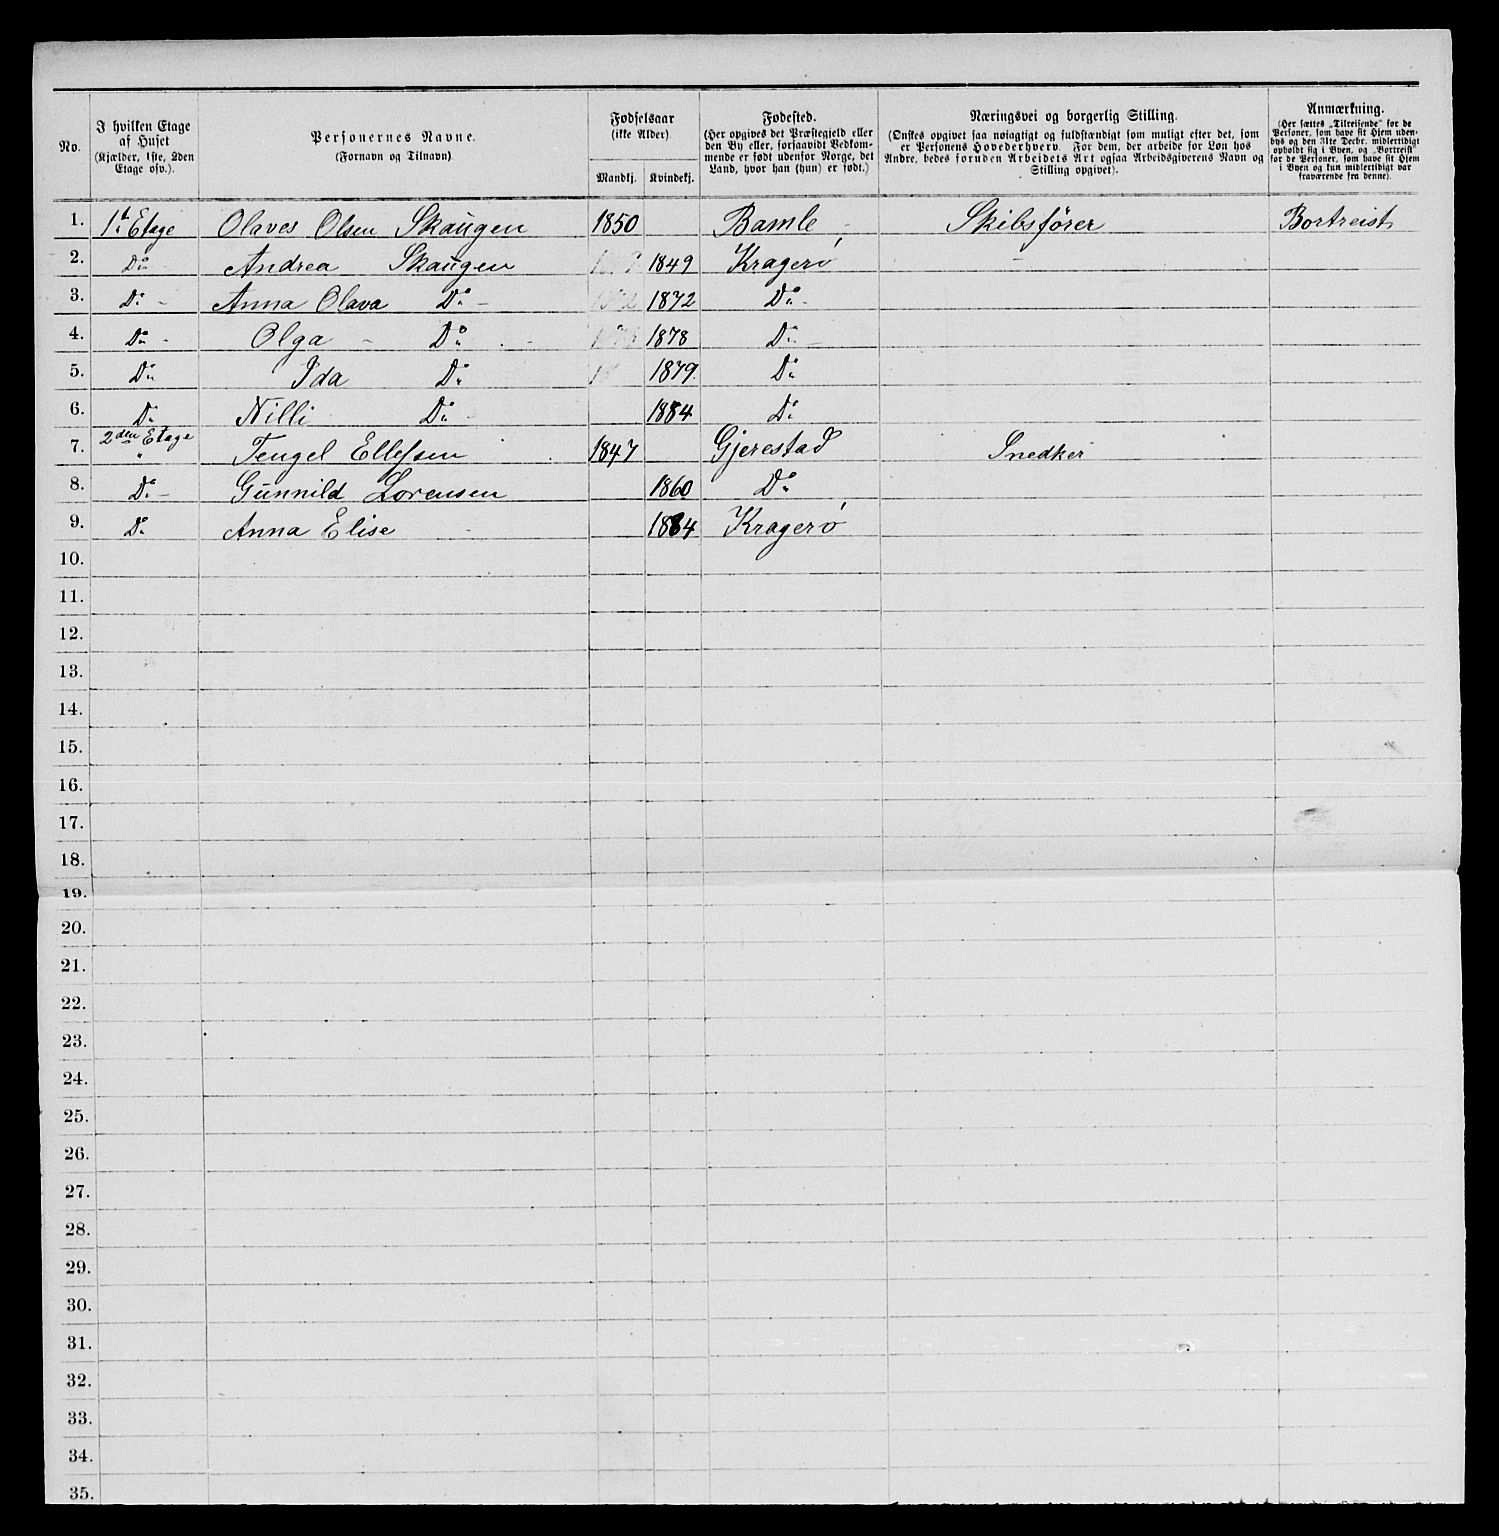 No.
I hvilken Etage af Huset (Kjælder, 1ste, 2den Etage osv.).
Personernes Navne. (Fornavn og Tilnavn)
Fødselsaar (ikke Alder). Mandkj. Kvindekj.
Fødested. (Her opgives det Præstegjeld eller den By eller, forsaavidt Vedkommende er født udenfor Norge, det Land, hvor han (hun) er født.)
Næringsvei og borgerlig Stilling. (Ønskes opgivet saa nøiagtigt og fuldstændigt som muligt efter det, som er Personens Hovederhverv. For dem, der arbeide for Løn hos Andre, bedes foruden Arbeidets Art ogsaa Arbeidsgiverens Navn og Stilling opgivet).
Anmærkning. (Her sættes „Tilreisende" for de Personer, som have sit Hjem udenbys og den 31te Decbr. midlertidigt opholdt sig i Byen, og „Bortreist" for de Personer, som have sit Hjem i Byen og kun midlertidigt var fraværende fra denne).
1. 1ᵗ Etage Olaves Olsen Skaugen 1850 Bamle Skibsfører Bortreist
2. Do Andrea Skaugen 1849 Kragerö
3. Do Anna Olava Do 1872 Do
4. Do Olga Do 1878 Do
5. Do Ida Do 1879 Do
6. Do Nilli Do 1884 Do
7. 2den Etage Tengel Ellefsen 1847 Gjerestad Snedker
8. Do Gunnild Lorensen 1860 Do
9. Do Anna Elise 1884 Kragerö
10.
11.
12.
13.
14.
15.
16.
17.
18.
19.
20.
21.
22.
23.
24.
25.
26.
27.
28.
29.
30.
31.
32.
33.
34.
35.